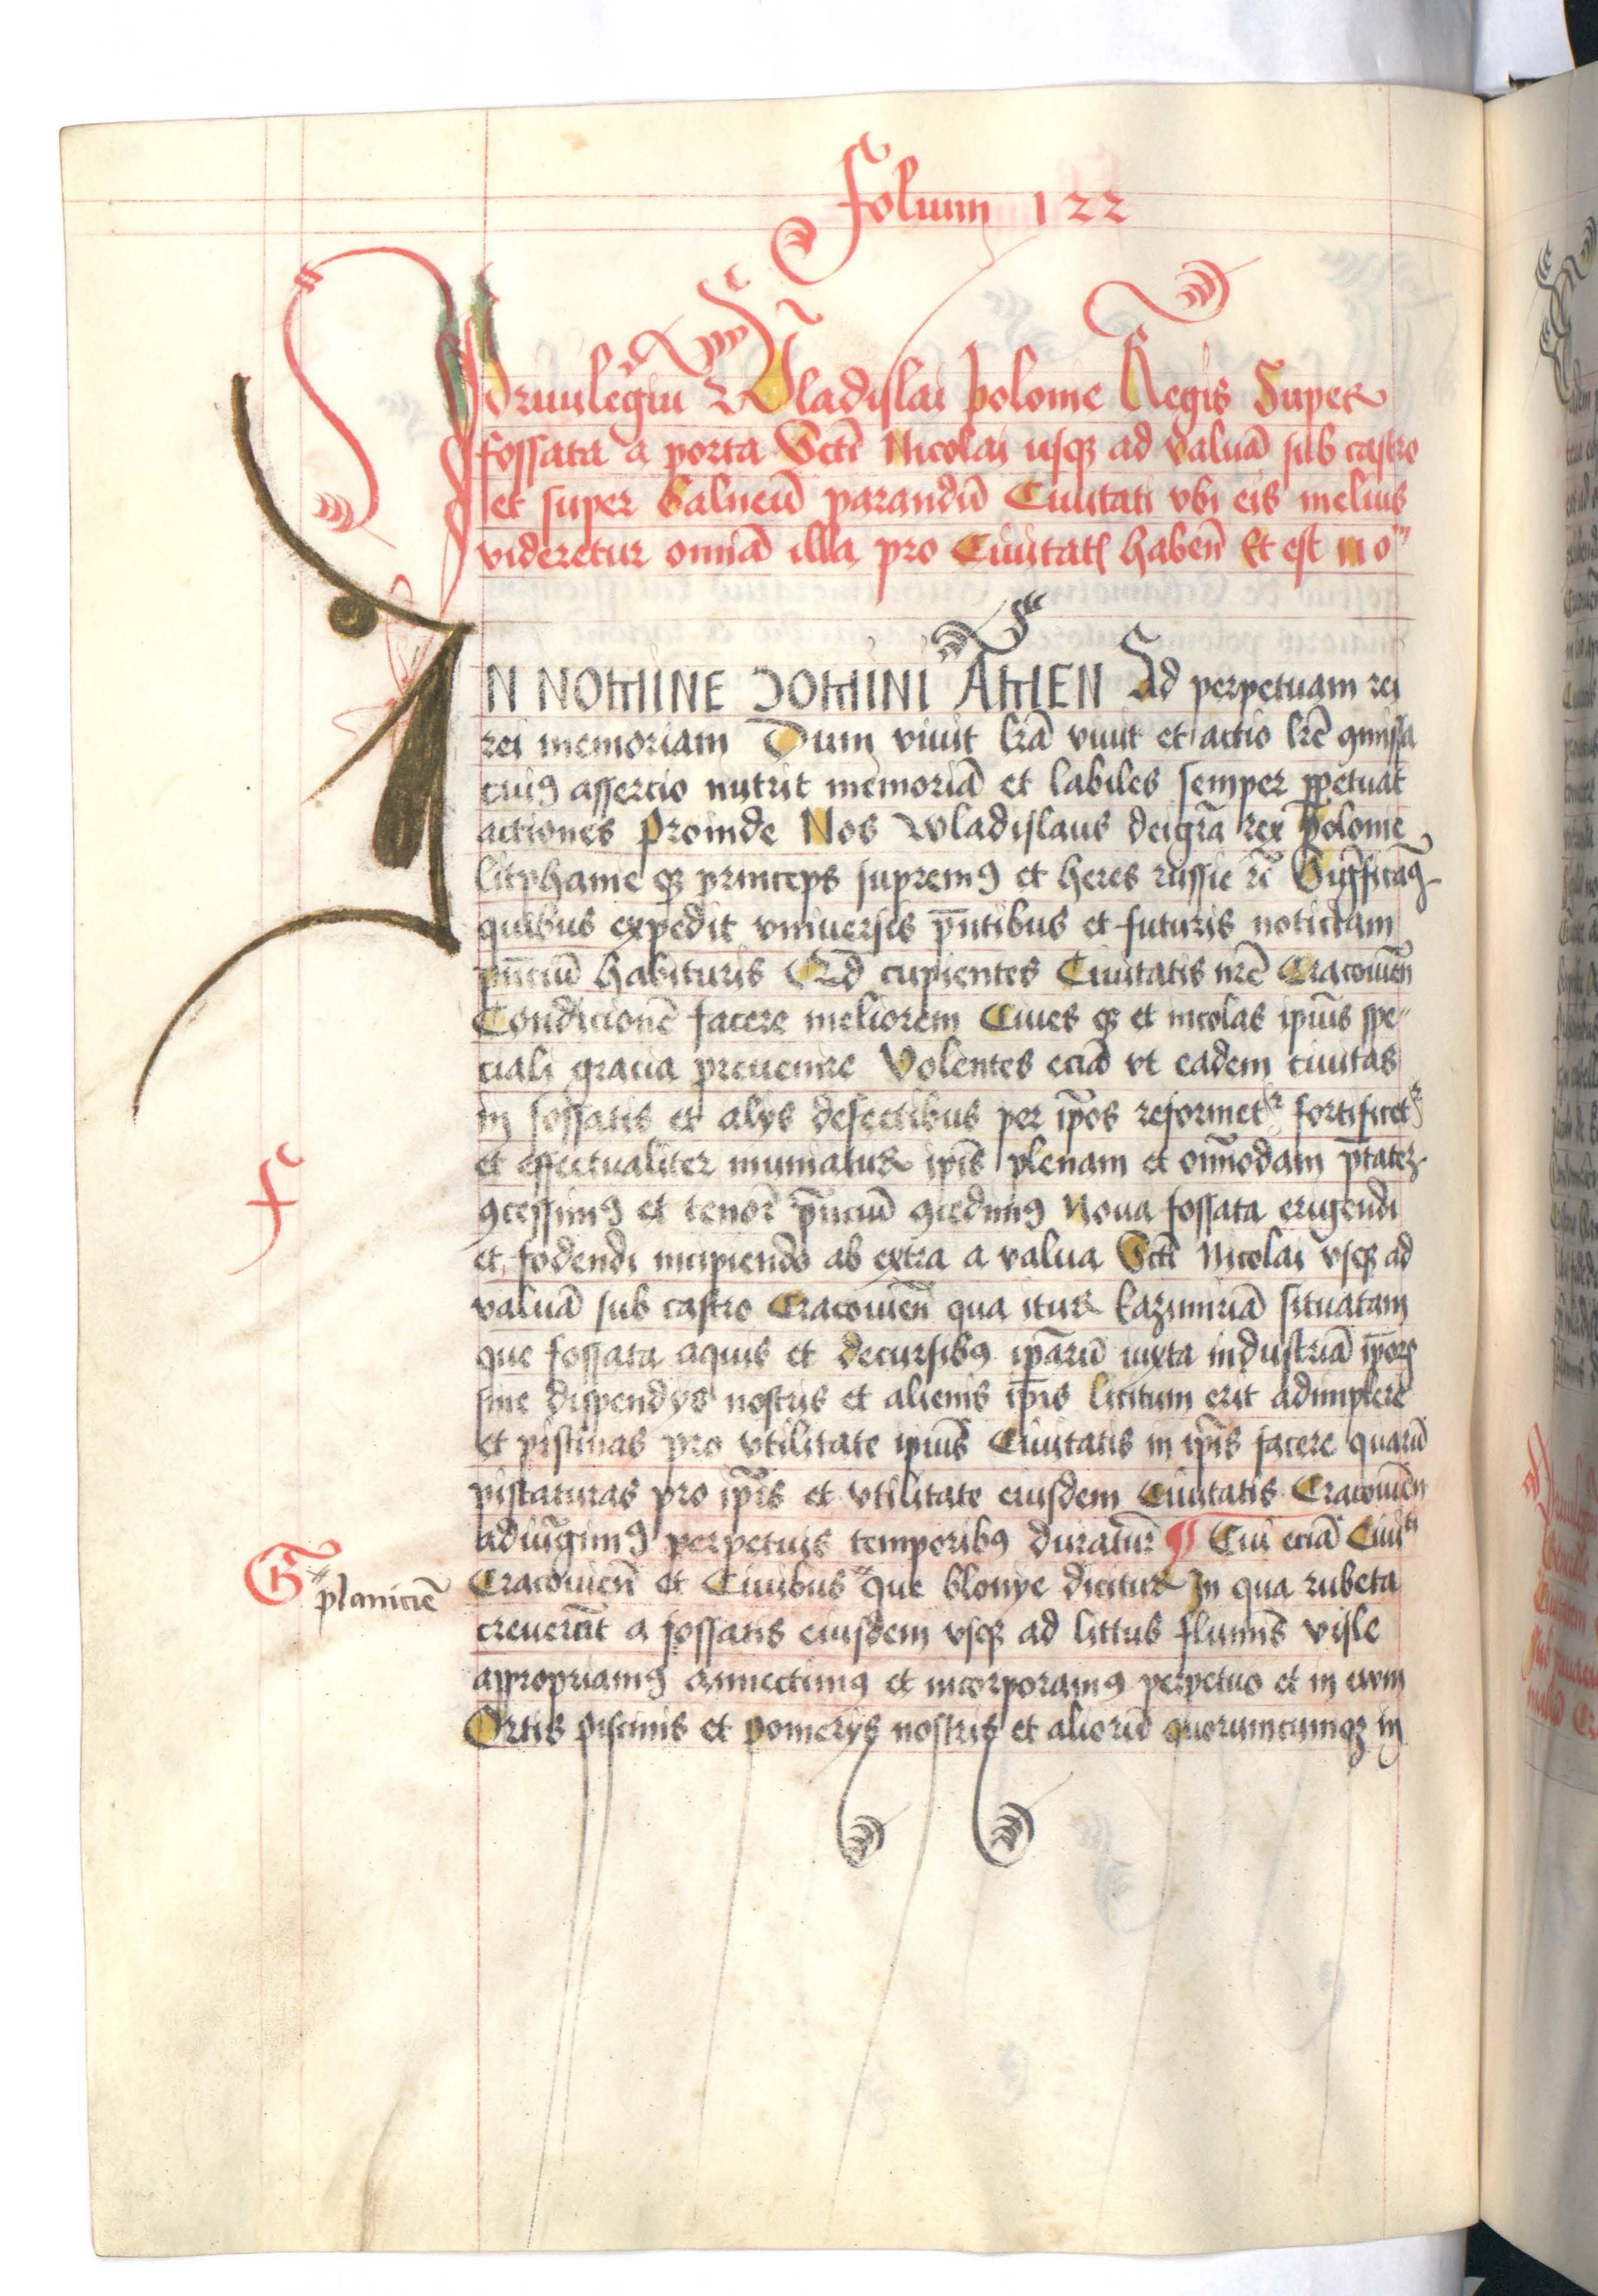 Folium 122
Priuilegiū Wladislai polonie Regis Super
fossata a porta Scti Nicolai usq ad valuā sub castro
et super balneū parandū Ciuitati vbi eis melius
videretur omiā illa pro Ciuitate habeñ Et est in o
IN NOMINE DOMINI AMEN Ad perpetuam rei
rei memoriam Dum viuit lrā viuit et actio lrē 9missa
cui9 assercio nutrit memoriā et labiles semper ppetuat
actiones Proinde Nos Wladislaus dei grā rex Polonie
litphanie q princeps suprem9 et heres russie
quibus expedit vniuersis pñtibus et futuris noticiam
pñciū habituris Qd cupientes Ciuitatis nrē Cracouieñ
Condicionē facere meliorem Ciues q et incolas ipius spe
ciali gracia preuenire Volentes eciā vt eadem ciuitas
in fossatis et alys defectibus per ipos reformet fortificet
et effectualiter muniatur ipis plenam et omodam ptatez
9cessim9 et tenore pñciū 9cedim9 Noua fossata erigendi
et fodendi incipiendo ab extra a valua Scti Nicolai vsq ad
valuā sub castro Cracouieñ qua itur kazimiriā situatam
que fossata aquis et decursib9 iparū iuxta industriā ipor
sine dispendys nostris et alienis ipis licitum erit adimplere
et piscinas pro vtilitate ipius Ciuitatis in ipis facere quarū
piscaturas pro ipis et vtilitate eiusdem Ciuitatis Cracouieñ
adiūgim9 perpetuis temporib9 duratur ¶ Cui eciā Ciuiti
G planiciē
Cracouieñ et Ciuibus que blonye dicitur In qua rubeta
creuerūt a fossatis eiusdem vsq ad littus fluminis visle
appropriam9 annectim9 et incorporam9 perpetuo et in ewm
Ortis piscinis et pomerys nostris et aliorū quorumcumqz in